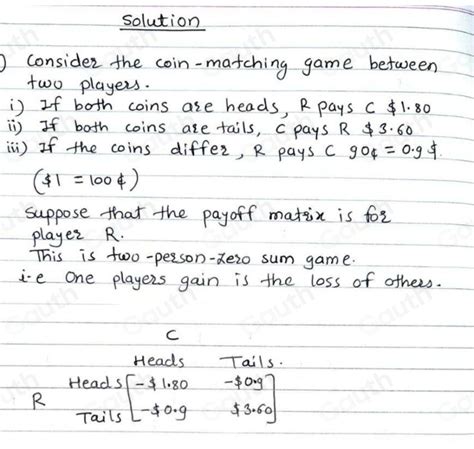 Solution
) Consider the coin-matching game between
two players.
i) If both coins are heads, R pays C $1.80
ii) If both coins are tails, C pays R $3.60
iii) If the coins differ, R pays C 90¢ = 0.9$.
($1 = 100¢)
Suppose that the payoff matrix is for
player R.
This is two-person-zero sum game.
i.e One players gain is the loss of others.
C
Heads Tails.
Heads [-$1.80 -$0.9]
R
Tails [-$0.9 $3.60]